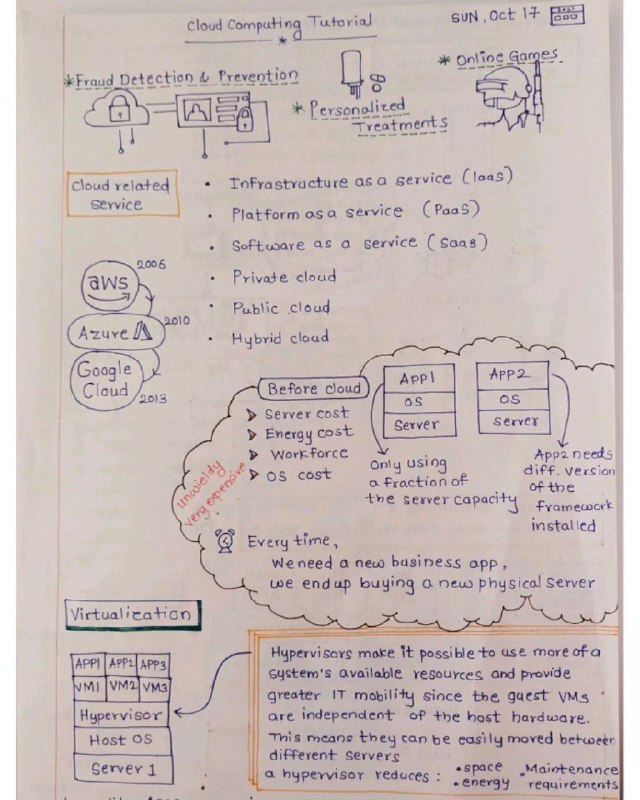 Cloud Computing Tutorial
SUN, Oct 17
* Fraud Detection & Prevention
* Personalized
Treatments
* Online Games
Cloud related
service
• Infrastructure as a service (Iaas)
• Platform as a service (Paas)
• Software as a service (Saas)
• Private cloud
• Public cloud
• Hybrid cloud
aws 2006
Azure 2010
Google
Cloud
2013
Before cloud
Server cost
Energy cost
Workforce
OS cost
Unwieldy
very expensive
APP1
OS
Server
APP2
OS
Server
Only using
a fraction of
the server capacity
App2 needs
diff. version
of the
framework
installed
Every time,
We need a new business app,
we end up buying a new physical server
Virtualization
APP1 APP2 APP3
VM1 VM2 VM3
Hypervisor
Host OS
Server 1
Hypervisors make it possible to use more of a
system's available resources and provide
greater IT mobility since the guest VMs
are independent of the host hardware.
This means they can be easily moved between
different servers
a hypervisor reduces: •space •Maintenance
•energy requirements